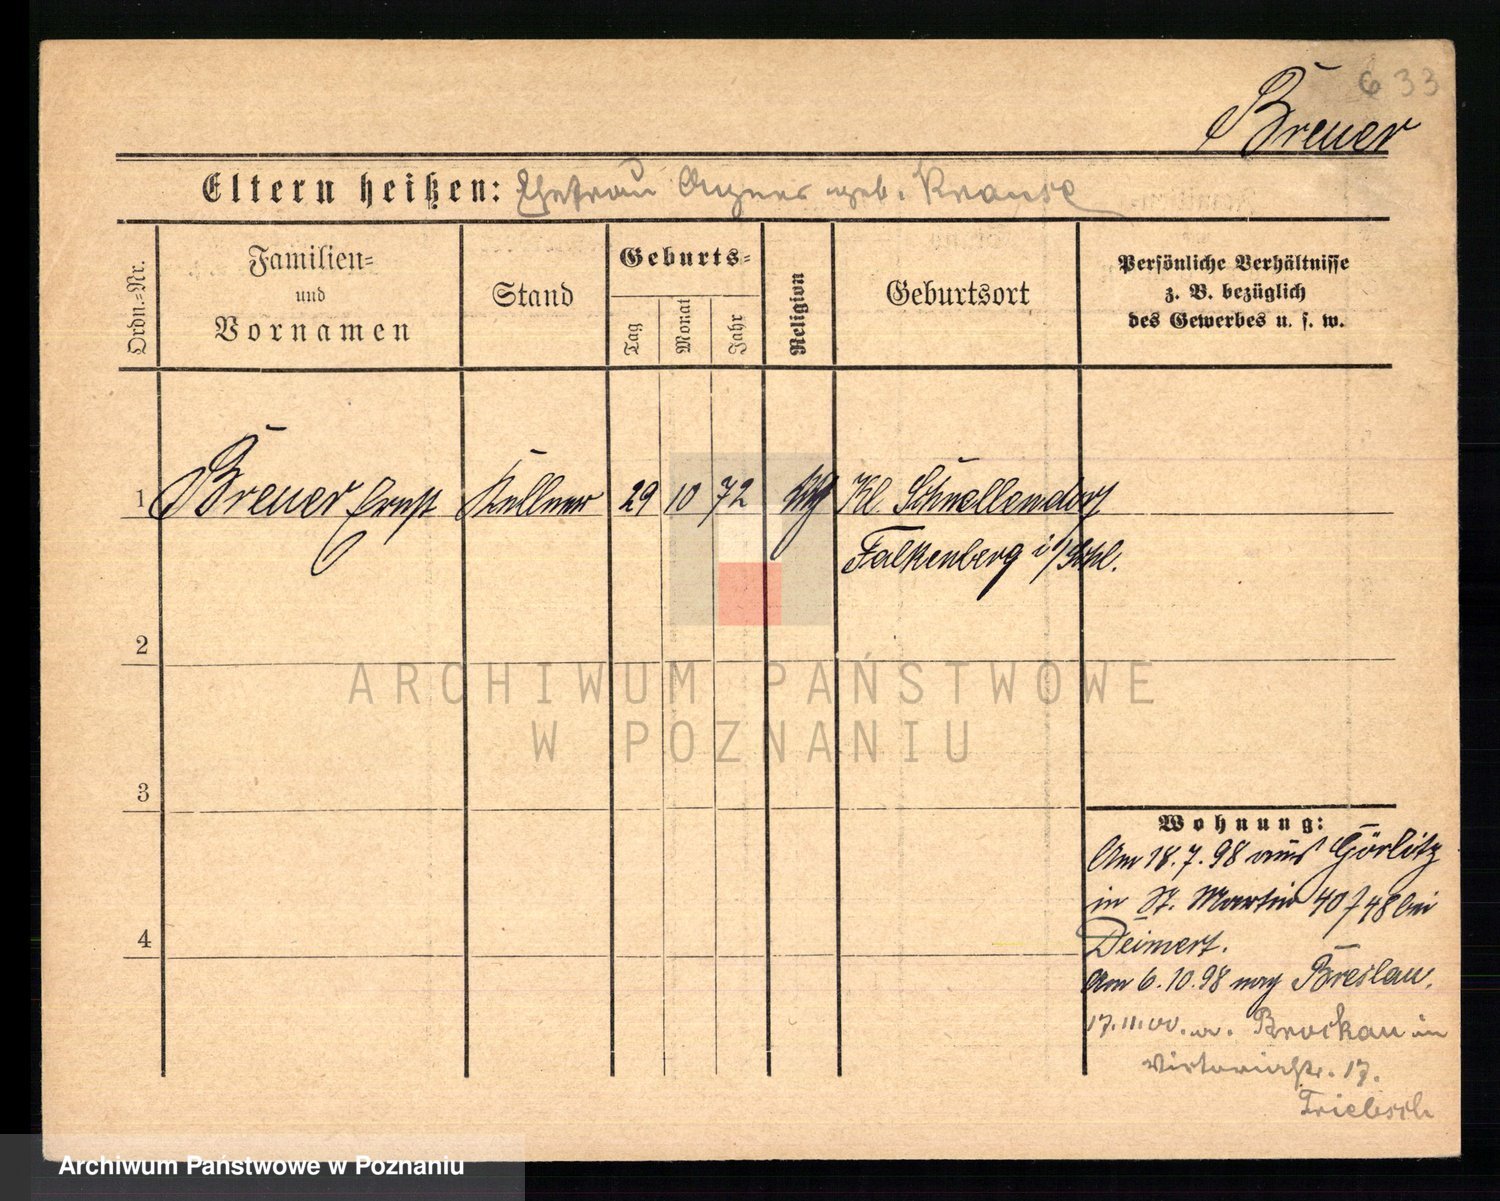 633
Breuer
Eltern heißen: Ehefrau Agnes geb. Krause
Ordn.=Nr.
Familien=
und
Vornamen
Stand
Geburts=
Tag
Monat
Jahr
Religion
Geburtsort
Persönliche Verhältnisse
z. B. bezüglich
des Gewerbes u. s. w.
1 Breuer Ernst Kellner 29 10 72 Kl. Schnellendorf
Falkenberg i/Schl.
2
ARCHIWUM PAŃSTWOWE
W POZNANIU
3
Wohnung:
Am 18.7.98 aus Görlitz
in St. Martin 40/48 bei
Deimert.
4
Am 6.10.98 nach Breslau.
17.11.00. v. Brockau in
Victoriastr. 17.
Triebsch
Archiwum Państwowe w Poznaniu